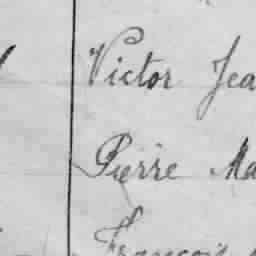 Victor Jea
Pierre Ma
François